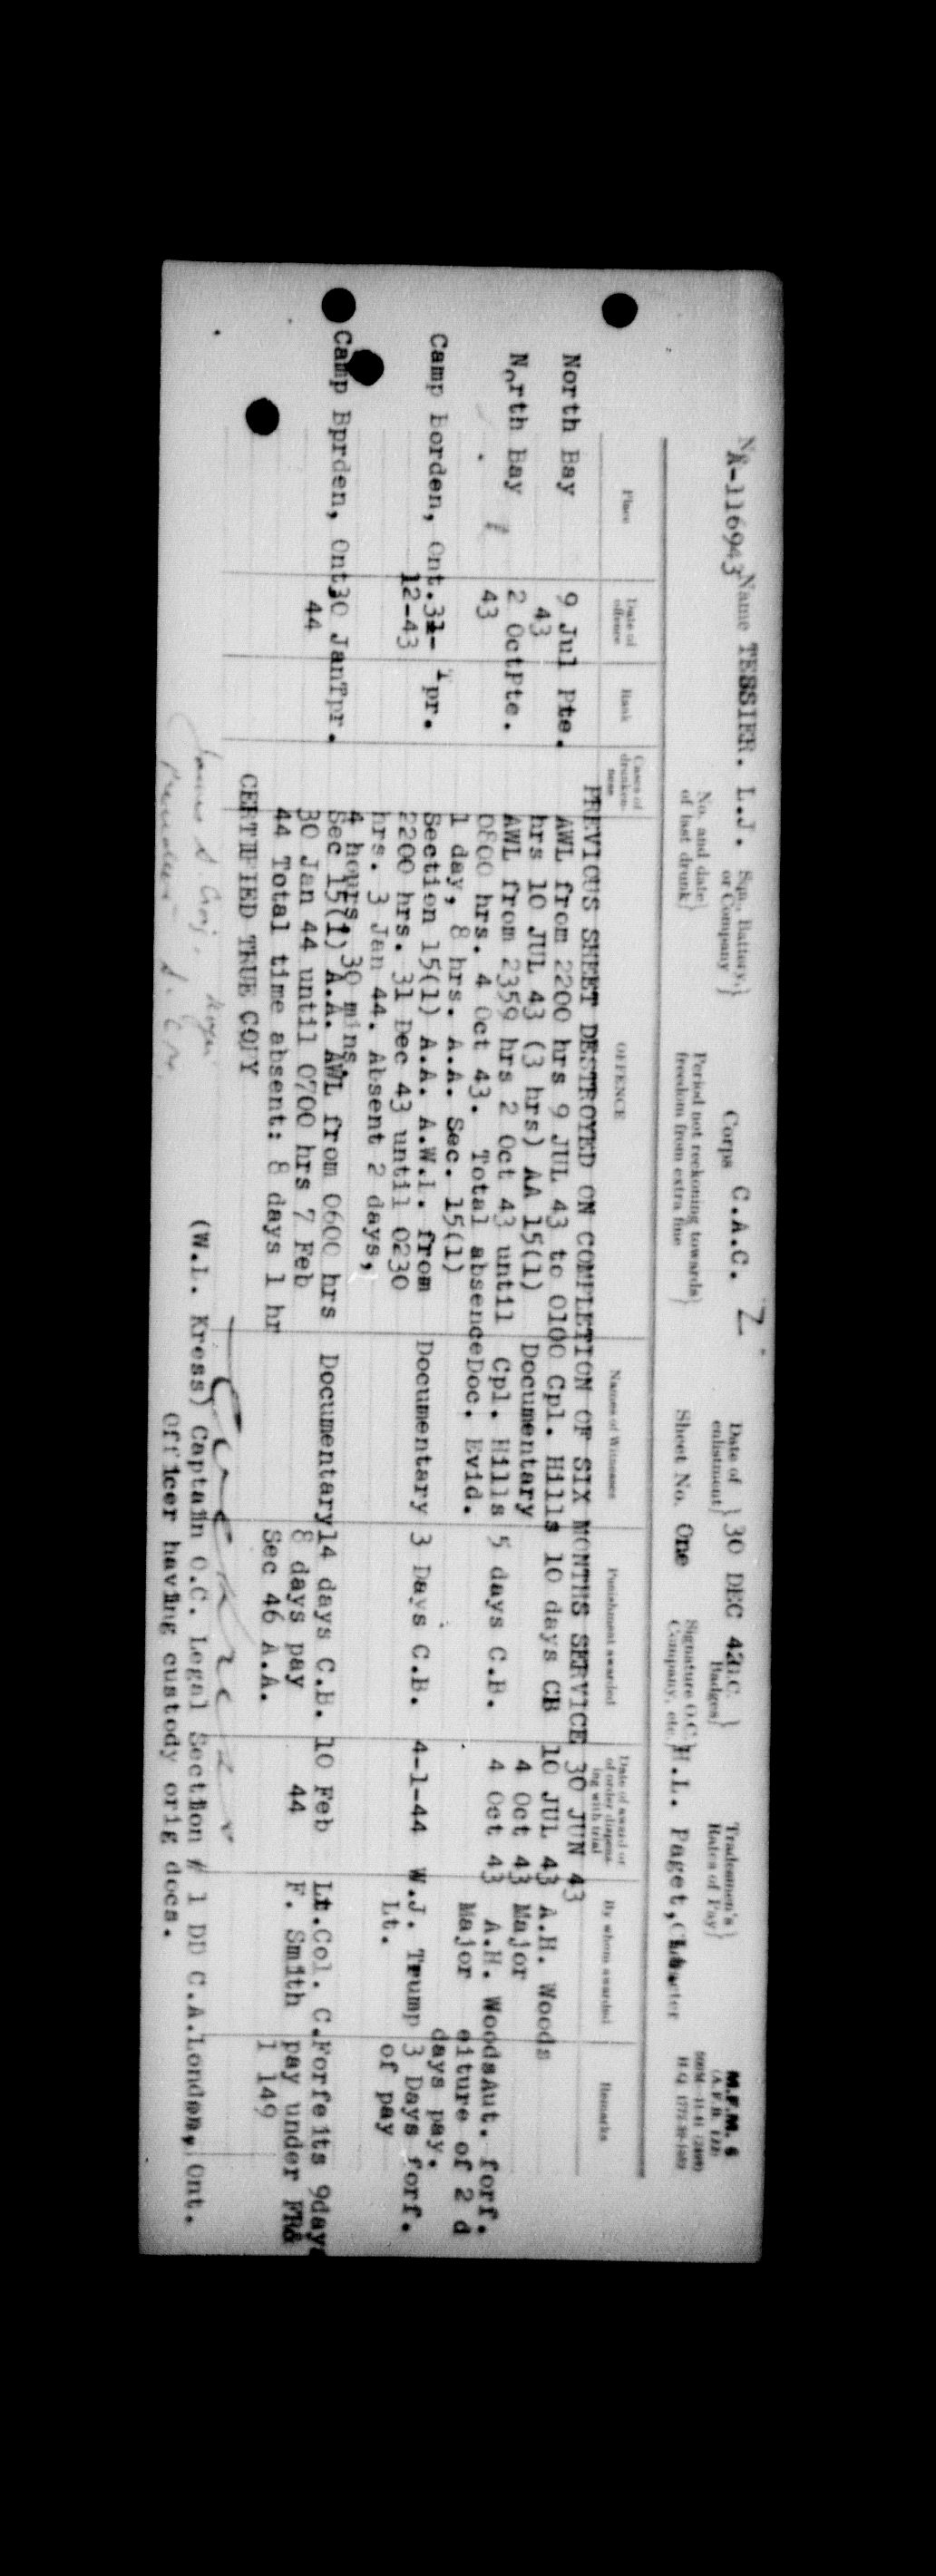 M.F.M. 6
No. A-116943 Name TESSIER. L.J. Sqn., Battery, or Company} Corps C.A.C. Z Date of enlistment} 30 DEC 42 G.C. Badges} Tradesmen's Rates of Pay}
No. and date of last drunk} Period not reckoning towards freedom from extra fine} Sheet No. One Signature O.C. Company, etc.} H.L. Paget, Lt.
Place Date of offence Rank Cases of drunkenness OFFENCE Names of Witnesses Punishment awarded Date of award or of order dispensing with trial By whom awarded Remarks
PREVIOUS SHEET DESTROYED ON COMPLETION OF SIX MONTHS SERVICE 30 JUN 43
North Bay 9 Jul Pte. AWL from 2200 hrs 9 JUL 43 to 0100 Cpl. Hills 10 days CB 10 JUL 43 A.H. Woods
43 hrs 10 JUL 43 (3 hrs) AA 15(1) Documentary 4 Oct 43 Major
North Bay 2 Oct Pte. AWL from 2359 hrs 2 Oct 43 until Cpl. Hills 5 days C.B. 4 Oct 43 A.H. Woods Aut. forf.
43 0800 hrs. 4 Oct 43. Total absence Doc. Evid. Major eiture of 2 d
1 day, 8 hrs. A.A. Sec. 15(1) days pay.
Camp Borden, Ont. 31- Tpr. Section 15(1) A.A. A.W.l. from Documentary 3 Days C.B. 4-1-44 W.J. Trump 3 Days forf.
12-43 2200 hrs. 31 Dec 43 until 0230 Lt. of pay
hrs. 3 Jan 44. Absent 2 days,
4 hours, 30 mins.
Camp Bprden, Ont. 30 Jan Tpr. Sec 15(1) A.A. AWL from 0600 hrs Documentary 14 days C.B. 10 Feb Lt.Col. C. Forfeits 9 days
44 30 Jan 44 until 0700 hrs 7 Feb 8 days pay 44 F. Smith pay under FR&
44 Total time absent: 8 days 1 hr Sec 46 A.A. 1 149
CERTIFIED TRUE COPY
(W.L. Kress) Captain O.C. Legal Section # 1 DD C.A. London, Ont.
Officer having custody orig docs.